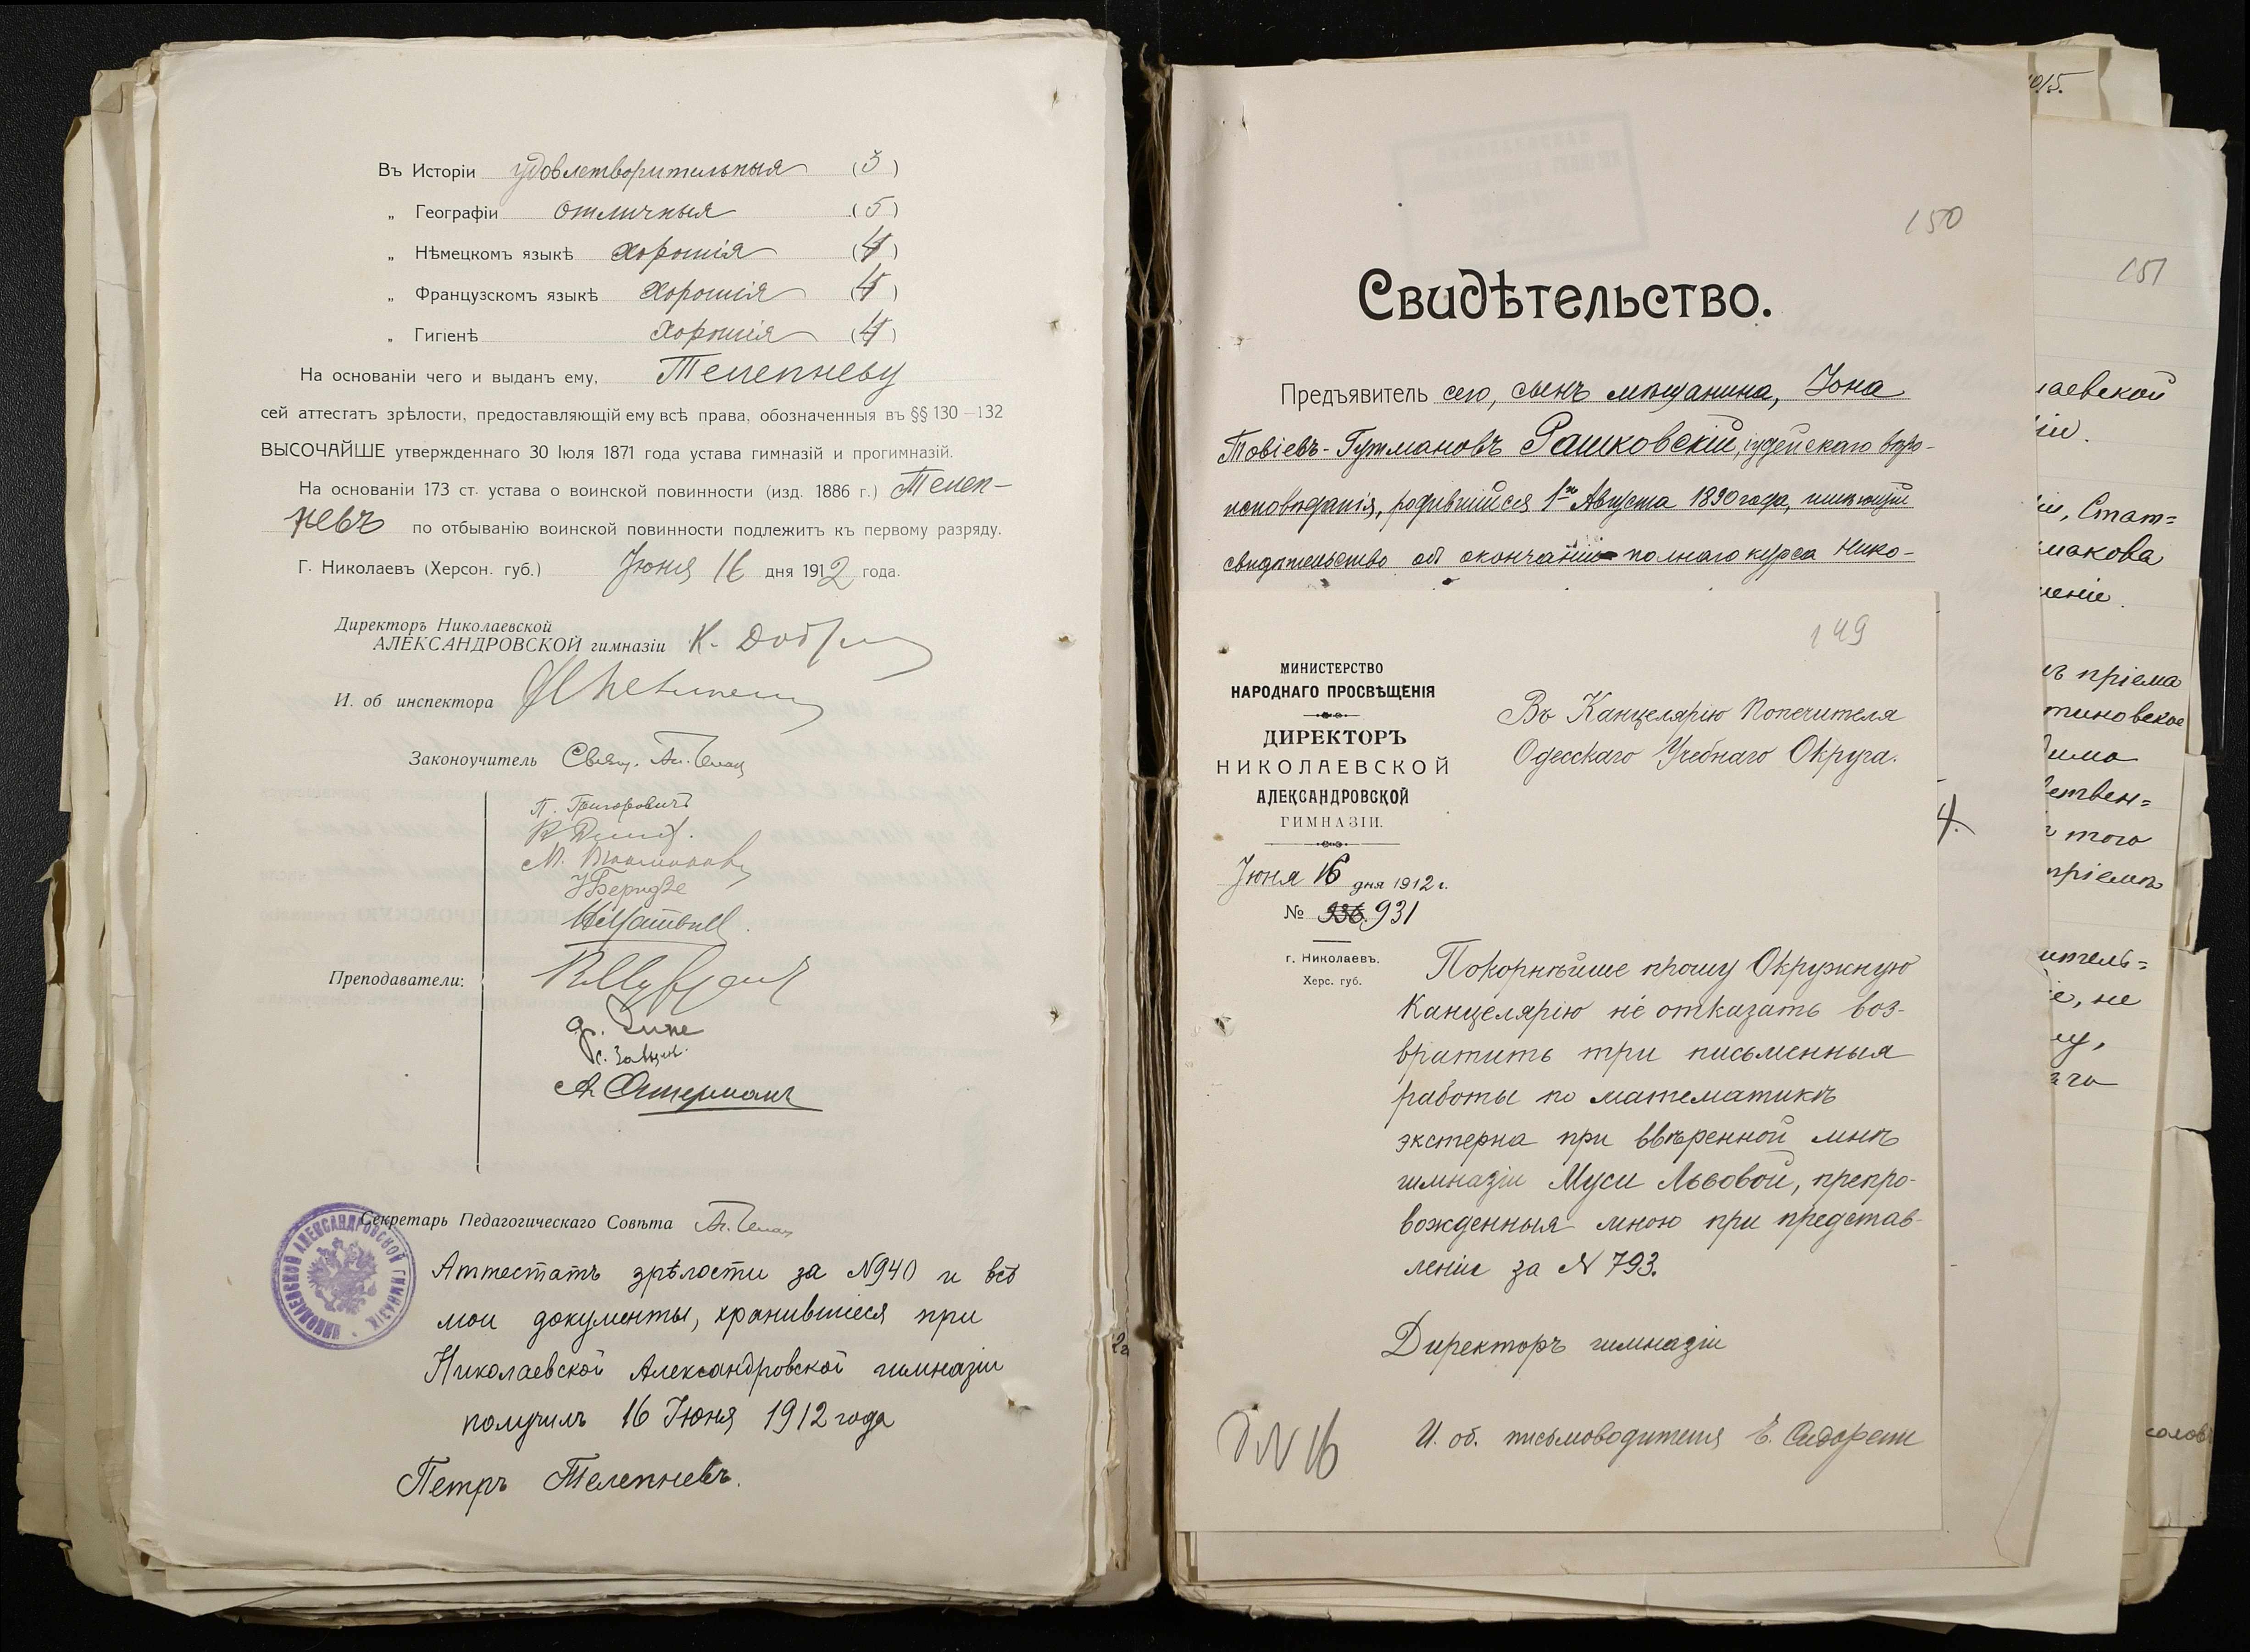 Въ Исторіи удовлетворительныя (3)
„ Географіи отличныя (5)
„ Нѣмецкомъ языкѣ хорошія (4)
„ Французскомъ языкѣ хорошія (4)
„ Гигіенѣ хорошія (4)
На основаніи чего и выданъ ему, Телепневу
сей аттестатъ зрѣлости, предоставляющій ему всѣ права, обозначенныя въ §§ 130—132
ВЫСОЧАЙШЕ утвержденнаго 30 Іюля 1871 года устава гимназій и прогимназій.
На основаніи 173 ст. устава о воинской повинности (изд. 1886 г.) Телеп-
невъ по отбыванію воинской повинности подлежитъ къ первому разряду.
Г. Николаевъ (Херсон. губ.) Іюня 16 дня 1912 года.
Директоръ Николаевской
АЛЕКСАНДРОВСКОЙ гимназіи К.
И. об инспектора
Законоучитель Свящ.
П. Григоровичъ
М.
Преподаватели:
Секретарь Педагогическаго Совѣта
НИКОЛАЕВСКОЙ АЛЕКСАНДРОВСКОЙ ГИМНАЗІИ
Аттестатъ зрѣлости за №940 и всѣ
мои документы, хранившіеся при
Николаевской Александровской гимназіи
получилъ 16 Іюня 1912 года
Петръ Телепневъ.
150
Свидѣтельство.
Предъявитель сего, сынъ мѣщанина, Іона
Товіевъ-Гутмановъ Рашковскій, іудейскаго вѣро-
исповѣданія, родившійся 1го Августа 1890 года, имѣющій
свидѣтельство объ окончаніи полнаго курса Нико-
149
МИНИСТЕРСТВО
НАРОДНАГО ПРОСВѢЩЕНІЯ
ДИРЕКТОРЪ
НИКОЛАЕВСКОЙ
АЛЕКСАНДРОВСКОЙ
ГИМНАЗІИ.
Іюня 16 дня 1912 г.
№ 936. 931
г. Николаевъ.
Херс. губ.
Въ Канцелярію Попечителя
Одесскаго Учебнаго Округа.
Покорнѣйше прошу Окружную
Канцелярію не отказать воз-
вратить три письменныя
работы по математикѣ
экстерна при ввѣренной мнѣ
гимназіи Муси Львовой, препро-
вожденныя мною при представ-
леніи за № 793.
Директоръ гимназіи
И. об. письмоводителя Е.
16
151
лаевской
Стат=
макова
ъ пріема
тиновское
ствен=
того
пріемъ
итель=
не